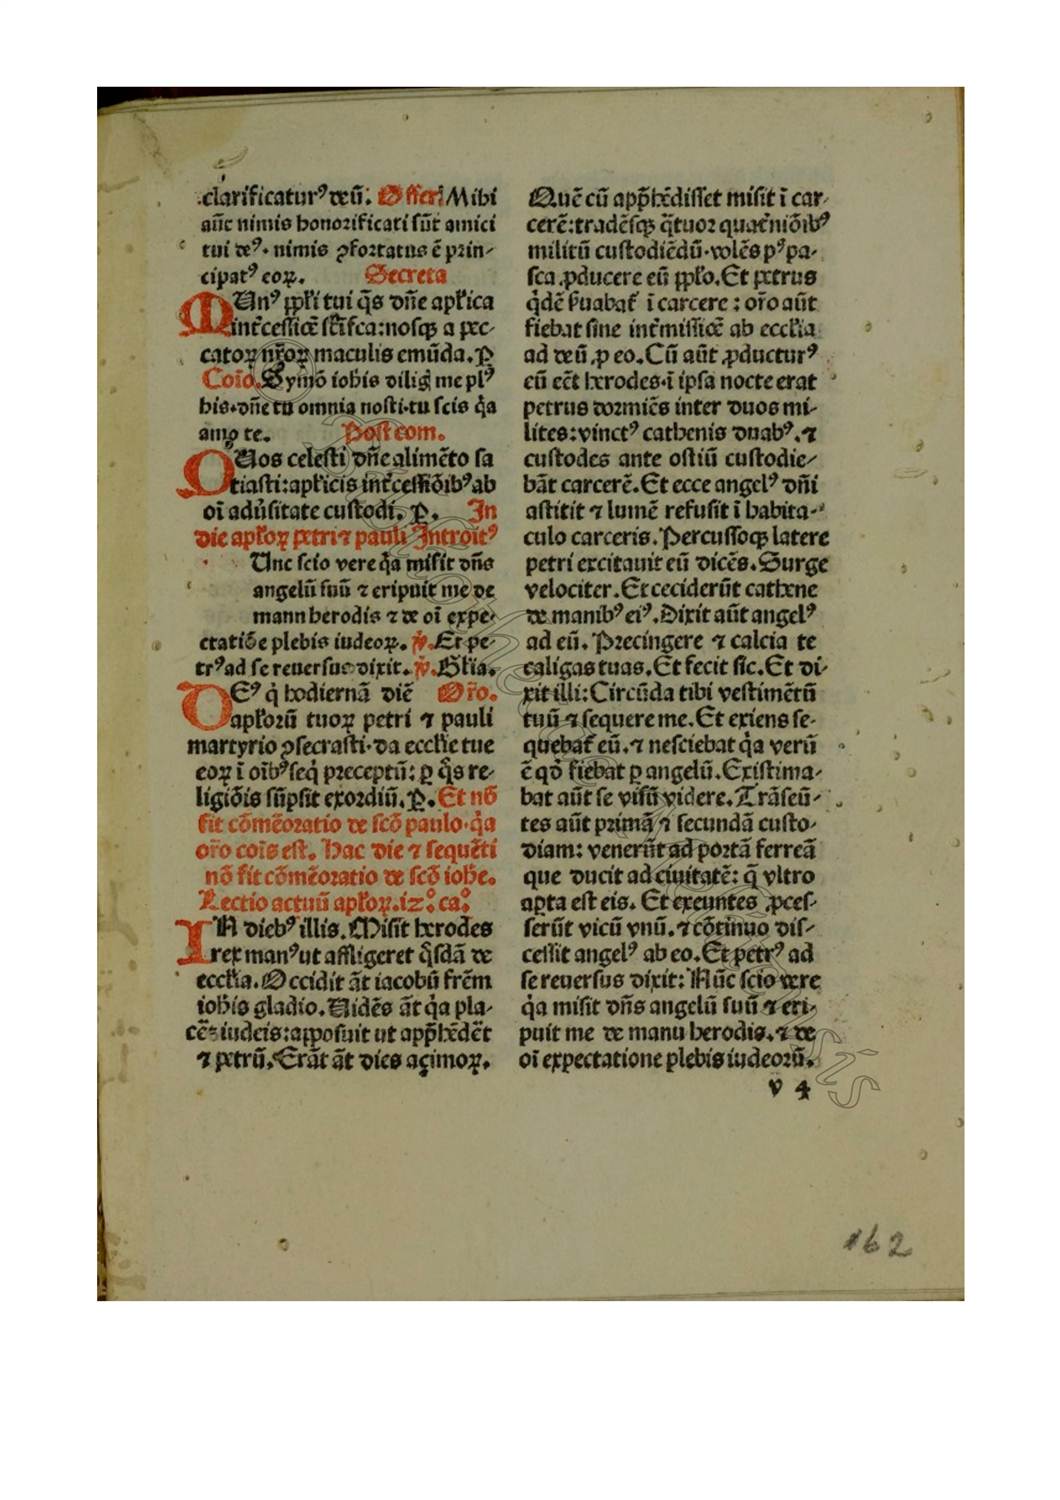 clarificatur⁹ deū. Offer̄ Mihi
aūt nimis honorificati sūt amici
tui de⁹. nimis ꝯfortatus ē prin-
cipat⁹ eoꝝ. Secreta
MUn⁹ ppl̄i tui q̄s dn̄e apl̄ica
int̄cessiōe sc̄ifca: nosqꝫ a pec-
catoꝝ nr̄oꝝ maculis emūda. P̲
Coīo. Symō ioh̄is dilig̣ me pl⁹
his. dn̄e tu omnia nosti. tu scis q̄a
amo te. Post com.
QUos celesti dn̄e alimēto sa
tiasti: apl̄icis int̄cessiōib⁹ ab
oī adūsitate custodi. P̲. In
die apl̄oꝝ petri ⁊ pauli Introit⁹
Unc scio vere q̄a misit dn̄s
angelū suū ⁊ eripuit me de
mann herodis ⁊ de oī expe-
ctatiōe plebis iudeoꝝ. p̄. Et pe-
tr⁹ ad se reuersus dixit. v̄. Gl̄ia.
DE⁹ q̇ hodiernā diē Oro.
apl̄orū tuoꝝ petri ⁊ pauli
martyrio ꝯsecrasti. da eccl̄ie tue
eoꝝ ī oīb⁹ seq̇ preceptū: ꝑ q̄s re-
ligiōis sūpsit exordiū. P̲. Et nō
fit cōmēoratio de scō paulo. q̄a
oro cois est. Hac die ⁊ sequēti
nō fit cōmēoratio de scō iohe.
Lectio actuū apl̄oꝝ. iz̊. cå.
IN dieb⁹ illis. Misit herodes
rex man⁹ ut affligeret q̇sdā de
eccl̄ia. Occidit āt iacobū frēm
ioh̄is gladio. Uidēs āt q̄a pla-
cēꝫ iudeis: apposuit ut app̄hēdēt
⁊ petrū. Erāt āt dies açimoꝝ.
Quē cū app̄hēdisset misit ī car-
cerē: tradēsqꝫ q̄tuor quat̄niōib⁹
militū custodiēdū. volēs p⁹ pa-
sca ꝓducere eū ppl̄o. Et petrus
q̇dē s̄uabat̄ ī carcere: oro aūt
fiebat sine int̄missiōe ab eccl̄ia
ad deū ꝓ eo. Cū aūt ꝓductur⁹
eū eēt herodes. ī ipsa nocte erat
petrus dormiēs inter duos mi-
lites: vinct⁹ cathenis duab⁹. ⁊
custodes ante ostiū custodie-
bāt carcerē. Et ecce angel⁹ dn̄i
astitit ⁊ lumē refulsit ī habita-
culo carceris. Percussoqꝫ latere
petri excitauit eū dicēs. Surge
velociter. Et ceciderūt cathene
de manib⁹ ei⁹. Dixit aūt angel⁹
ad eū. Precingere ⁊ calcia te
caligas tuas. Et fecit sic. Et di-
xit illi: Circūda tibi vestimētū
tuū ⁊ sequere me. Et exiens se-
quebat̄ eū. ⁊ nesciebat q̄a verū
ē qd̄ fiebat ꝑ angelū. Existima-
bat aūt se visū videre. Trāseū-
tes aūt primā ⁊ secundā custo-
diam: venerūt ad portā ferreā
que ducit ad ciuitatē: q̄ vltro
aꝑta est eis. Et exeuntes ꝓces-
serūt vicū vnū. ⁊ cōtinuo dis-
cessit angel⁹ ab eo. Et petr⁹ ad
se reuersus dixit: Nūc scio vere
q̄a misit dn̄s angelū suū ⁊ eri-
puit me de manu herodis. ⁊ de
oī expectatione plebis iudeorū.
v 4
162